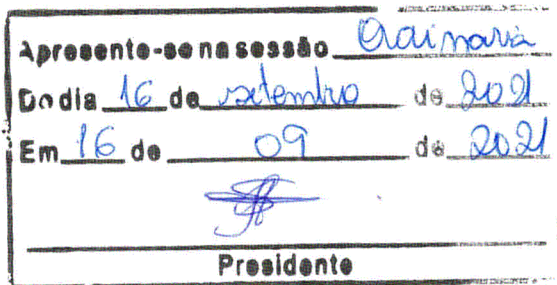 Apresente-se na sessão Ordinária
Do dia 16 de setembro de 2021
Em 16 de 09 de 2021
Presidente